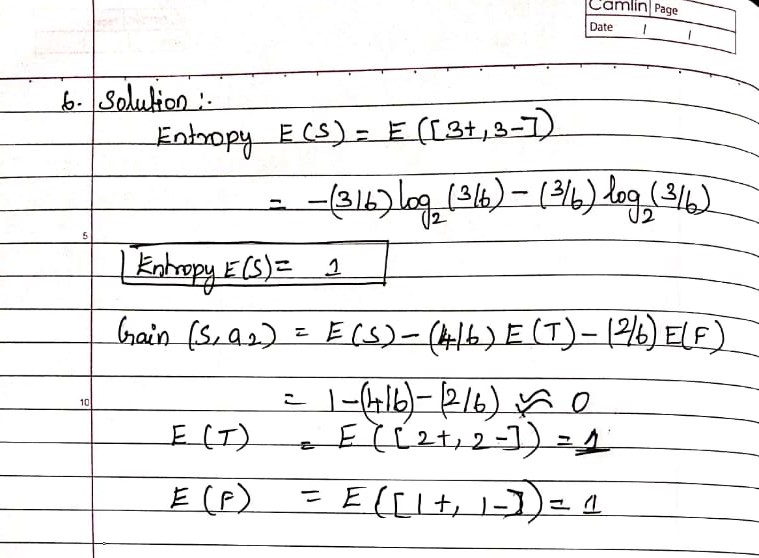 Camlin Page
Date / /
6. Solution :-
Entropy E(S) = E([3+, 3-])
= -(3/6) log₂ (3/6) - (3/6) log₂ (3/6)
5
Entropy E(S) = 1
Gain (S, a2) = E(S) - (4/6) E(T) - (2/6) E(F)
10
= 1 - (4/6) - (2/6) ≈ 0
E(T) = E([2+, 2-]) = 1
E(F) = E([1+, 1-]) = 1